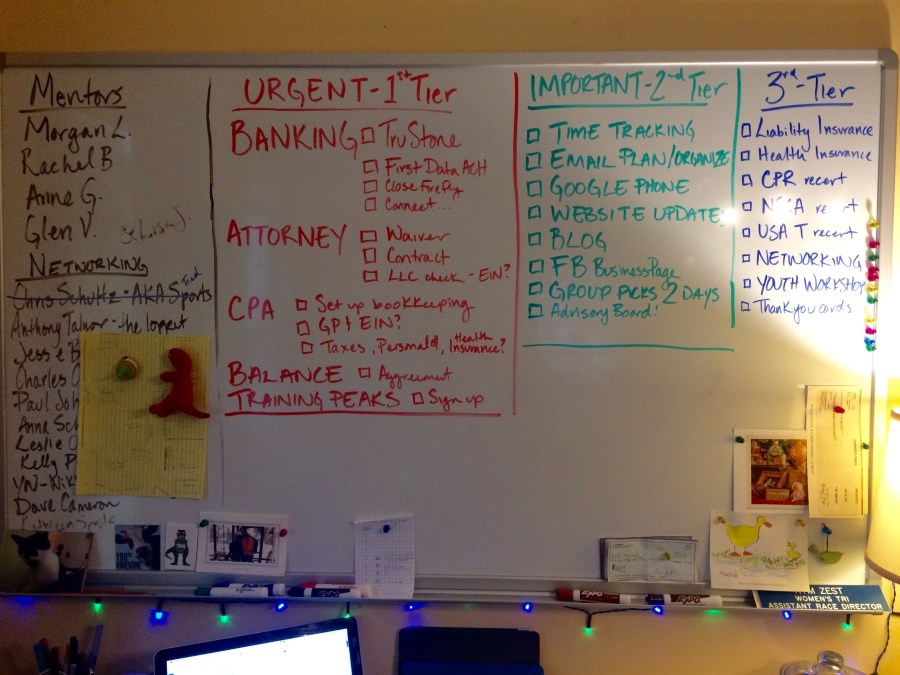 Mentors
Morgan L.
Rachel B
Anne G.
Glen V.
NETWORKING
Chris Schultz - AKA Sports
Anthony - the loppet
Jess e B
Charles
Paul Joh
Anna Sch
Leslie
Kelly P
Dave Cameron
URGENT - 1st Tier
BANKING ☐ TruStone
☐ First Data ACH
☐ Close Firefly
☐ Connect...
ATTORNEY ☐ Waiver
☐ Contract
☐ LLC check - EIN?
CPA ☐ Set up bookkeeping
☐ EIN?
☐ Taxes, Personal, Health Insurance?
BALANCE ☐ Aggreement
TRAINING PEAKS ☐ Sign up
IMPORTANT - 2nd Tier
☐ TIME TRACKING
☐ EMAIL PLAN/ORGANIZE
☐ GOOGLE PHONE
☐ WEBSITE UPDATE
☐ BLOG
☐ FB Business Page
☐ GROUP PICKS 2 DAYS
☐ Advisory Board!
3rd - Tier
☐ Liability Insurance
☐ Health Insurance
☐ CPR recert
☐ recert
☐ USA T recert
☐ NETWORKING
☐ YOUTH WORKSHOP
☐ Thank you cards
EXPO
EXPO
EXPO
ZEST
WOMEN'S TRI
ASSISTANT RACE DIRECTOR